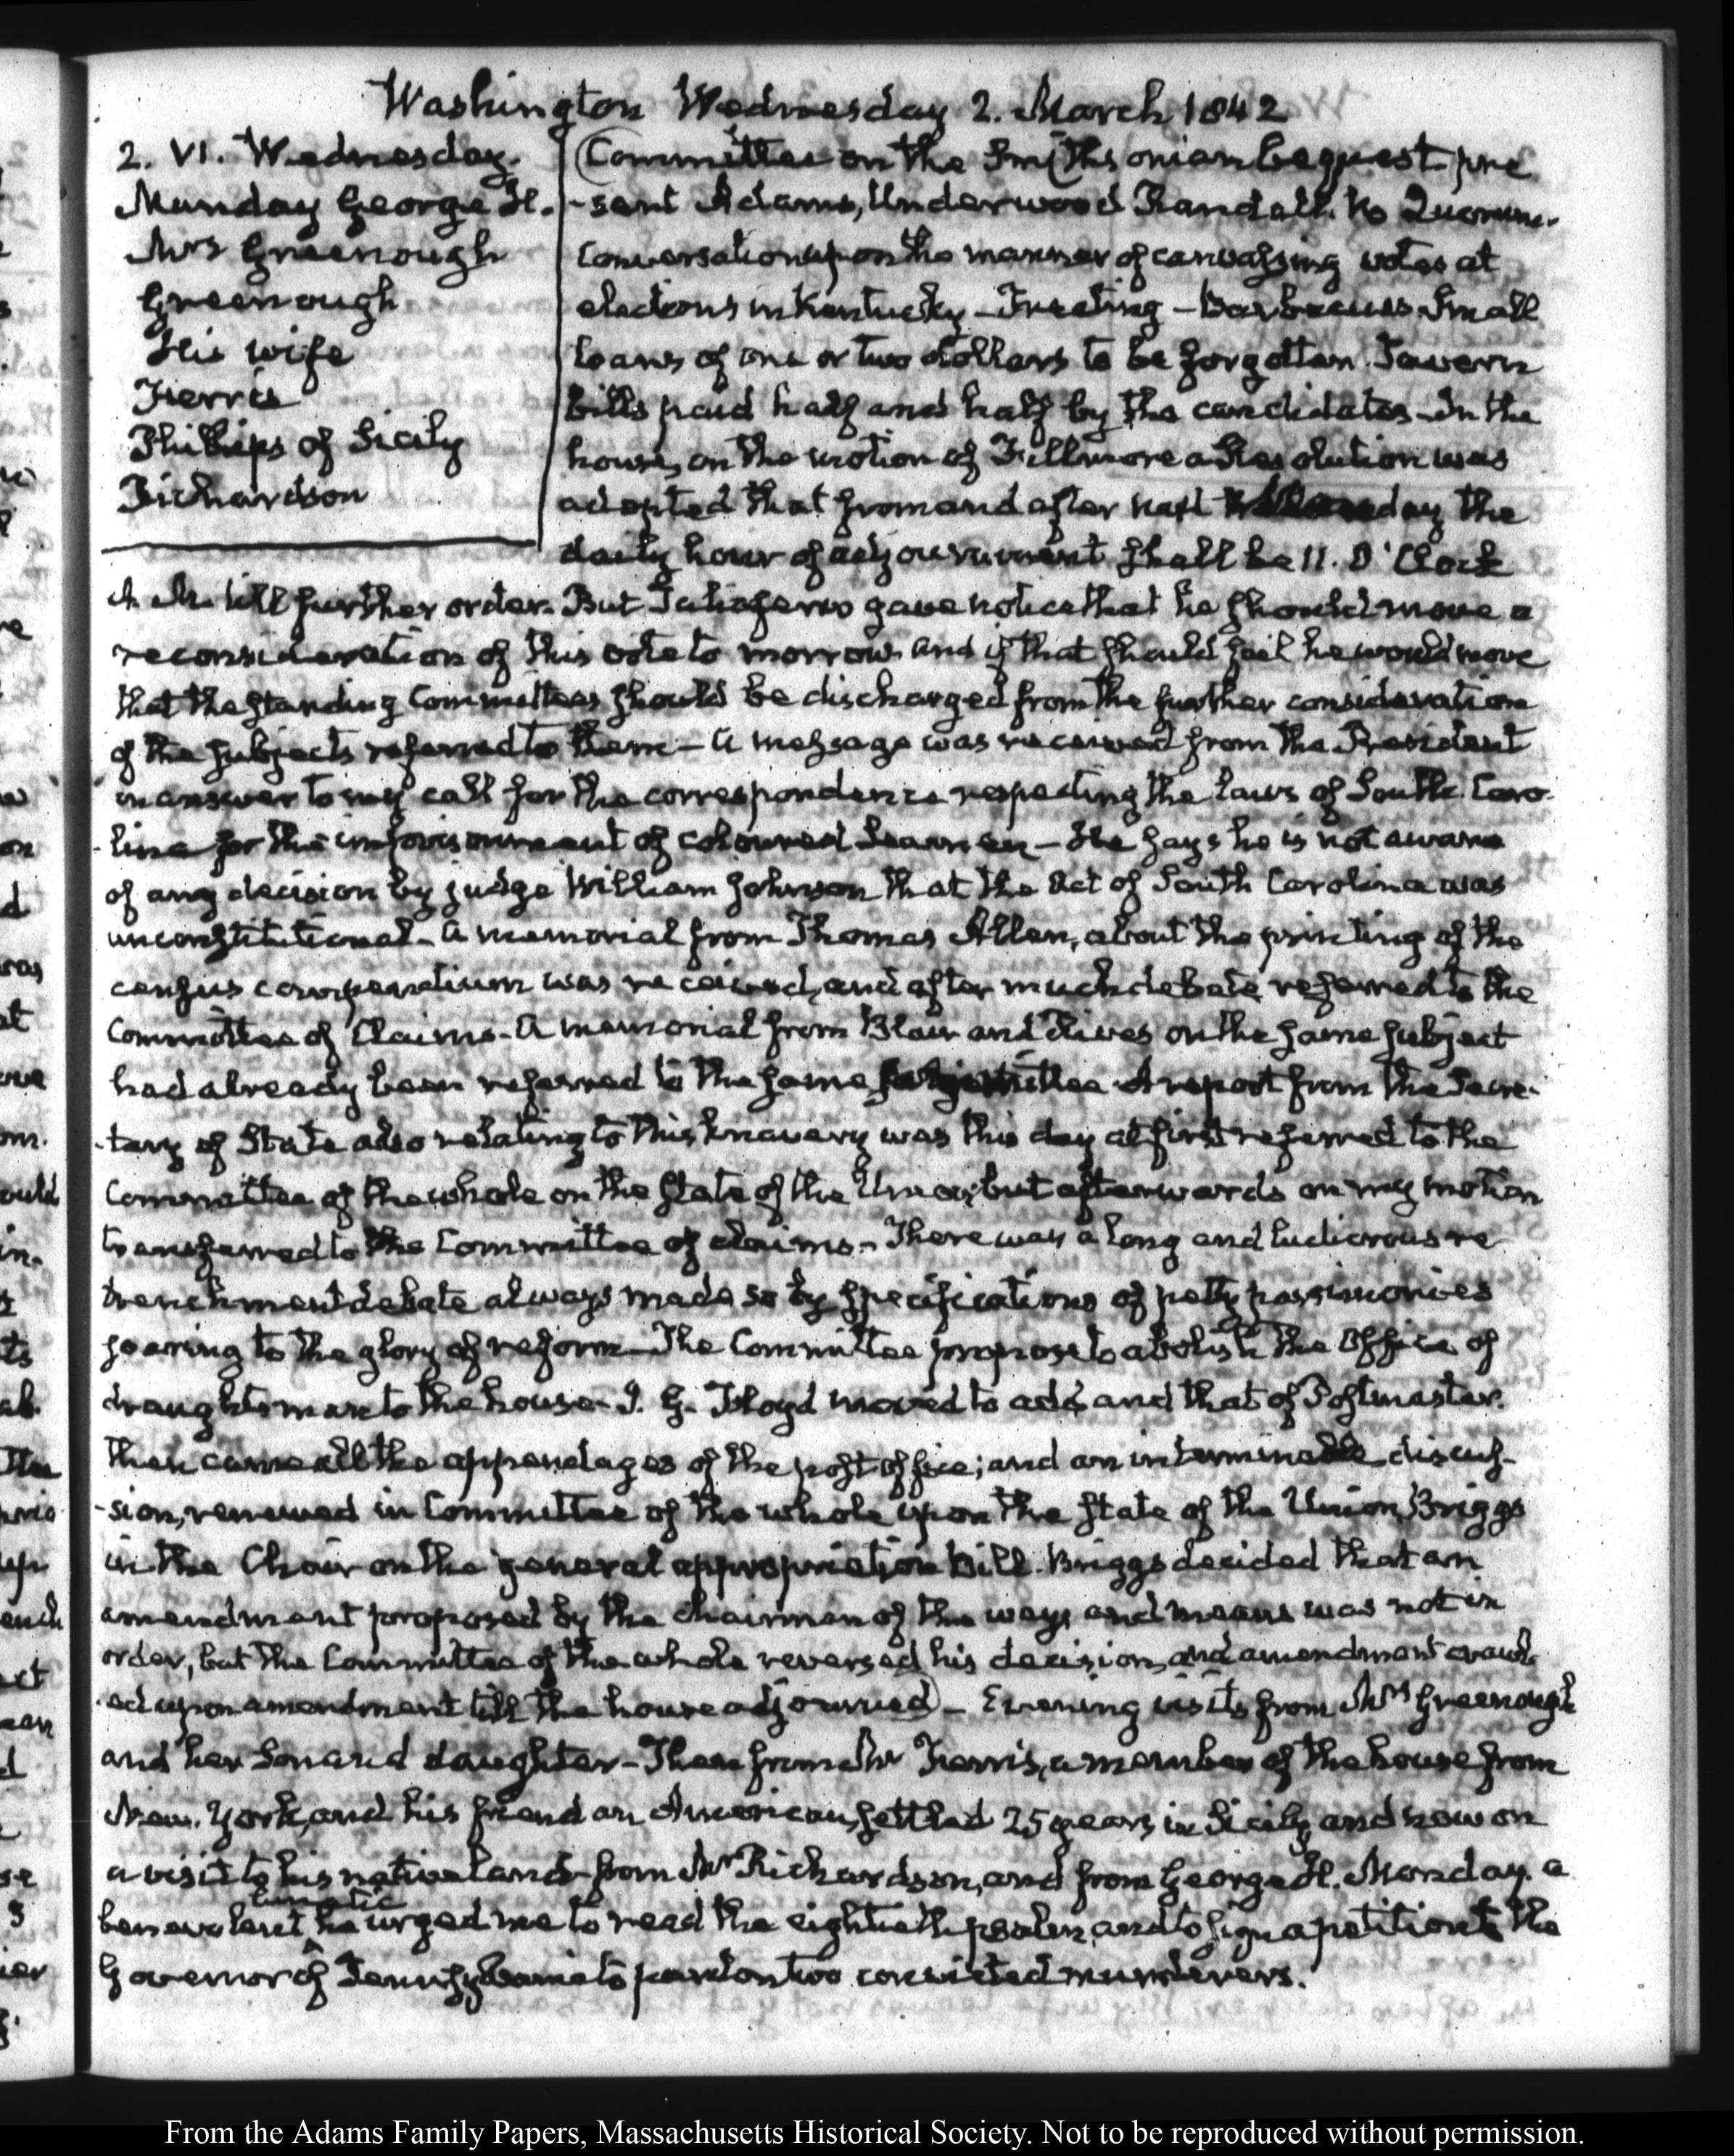 Washington Wednesday 2. March 1842
2. VI. Wednesday.
Munday George H.
Mrs Greenough
Greenough
His wife
Ferris
Phillips of Sicily
Richardson
Committee on the Smithsonian bequest pre
-sent Adams, Underwood Randall. No Quorum.
Conversation upon the manner of canvassing votes at
elections in Kentucky - Treating - Barbecues Small
loans of one or two dollars to be forgotten. Tavern
bills paid half and half by the candidates - In the
house, on the motion of Fillmore a Resolution was
adopted that from and after next day the
daily hour of adjournment shall be 11. O'Clock
A. M. till further order. But Taliaferro gave notice that he should move a
reconsideration of this vote to morrow and if that should fail he would move
that the standing Committees should be discharged from the further consideration
of the subjects referred to them - A message was received from the President
in answer to my call for the correspondence respecting the laws of South Caro-
-lina for the imprisonment of coloured Seamen - He says he is not aware
of any decision by judge William Johnson that the Act of South Carolina was
unconstitutional - A memorial from Thomas Allen, about the printing of the
census compendium was received, and after much debate referred to the
Committee of Claims - A memorial from Blair and Rives on the same subject
had already been referred to the same A report from the Secre-
-tary of State also relating to this knavery was this day at first referred to the
Committee of the whole on the state of the Union; but afterwards on my motion
transferred to the Committee of claims - There was a long and ludicrous re
trenchment debate always made so by specifications of petty parsimonies
soaring to the glory of reform - The Committee propose to abolish the Office of
draughtsman to the house - J. G. Floyd moved to add and that of Postmaster.
Then came all the appendages of the post office; and an interminable discus-
-sion, renewed in Committee of the whole upon the state of the Union, Briggs
in the Chair on the general appropriation bill. Briggs decided that an
amendment proposed by the chairman of the ways and means was not in
order, but the Committee of the whole reversed his decision, and amendment crawl
ed upon amendment till the house adjourned) - Evening visits from Mrs Greenough
and her Son and daughter - Then from Mr Ferris, a member of the house from
New. York, and his friend an American, settled 25 years in Sicily and now on
a visit to his native land - from Mr Richardson, and from George H. Monday. a
benevolent lunatic he urged me to read the eightieth psalm, and to sign a petition to the
Governor of Pennsylvania to pardon two convicted murderers.
From the Adams Family Papers, Massachusetts Historical Society. Not to be reproduced without permission.